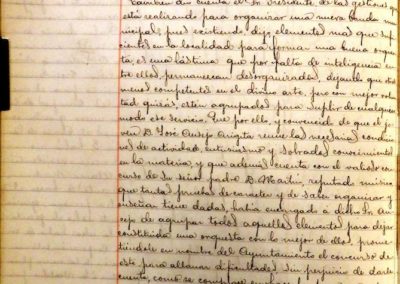 También dio cuenta el Sr. Presidente de las gestiones que
está realizando para organizar una nueva banda mu-
nicipal, pues existiendo dijo elementos mas que sufi-
cientes en la localidad para formar una buena orques-
ta, es una lástima que por falta de inteligencia en-
tre ellos, permanezcan desorganizados, dejando que otros
menos competentes en el divino arte, pero con mejor volun-
tad quizás, estén agrupados para suplir de cualquier
modo ese servicio. Que por ello, y convencido de que el jo-
ven D. José reune las necesarias condicio-
nes de actividad, entusiasmo y sobrados conocimientos
en la materia, y que además cuenta con el valioso con-
curso de su señor padre D. Martín, reputado músico
que tantas pruebas de caracter y de saber organizar y
enseñar tiene dadas, había encargado a dicho Sr.
de agrupar todos aquellos elementos para dejar
constituida una orquesta con lo mejor de ellos, prome-
tiéndole en nombre del Ayuntamiento el concurso de
este para allanar dificultades, sin perjuicio de darle
cuenta, como se